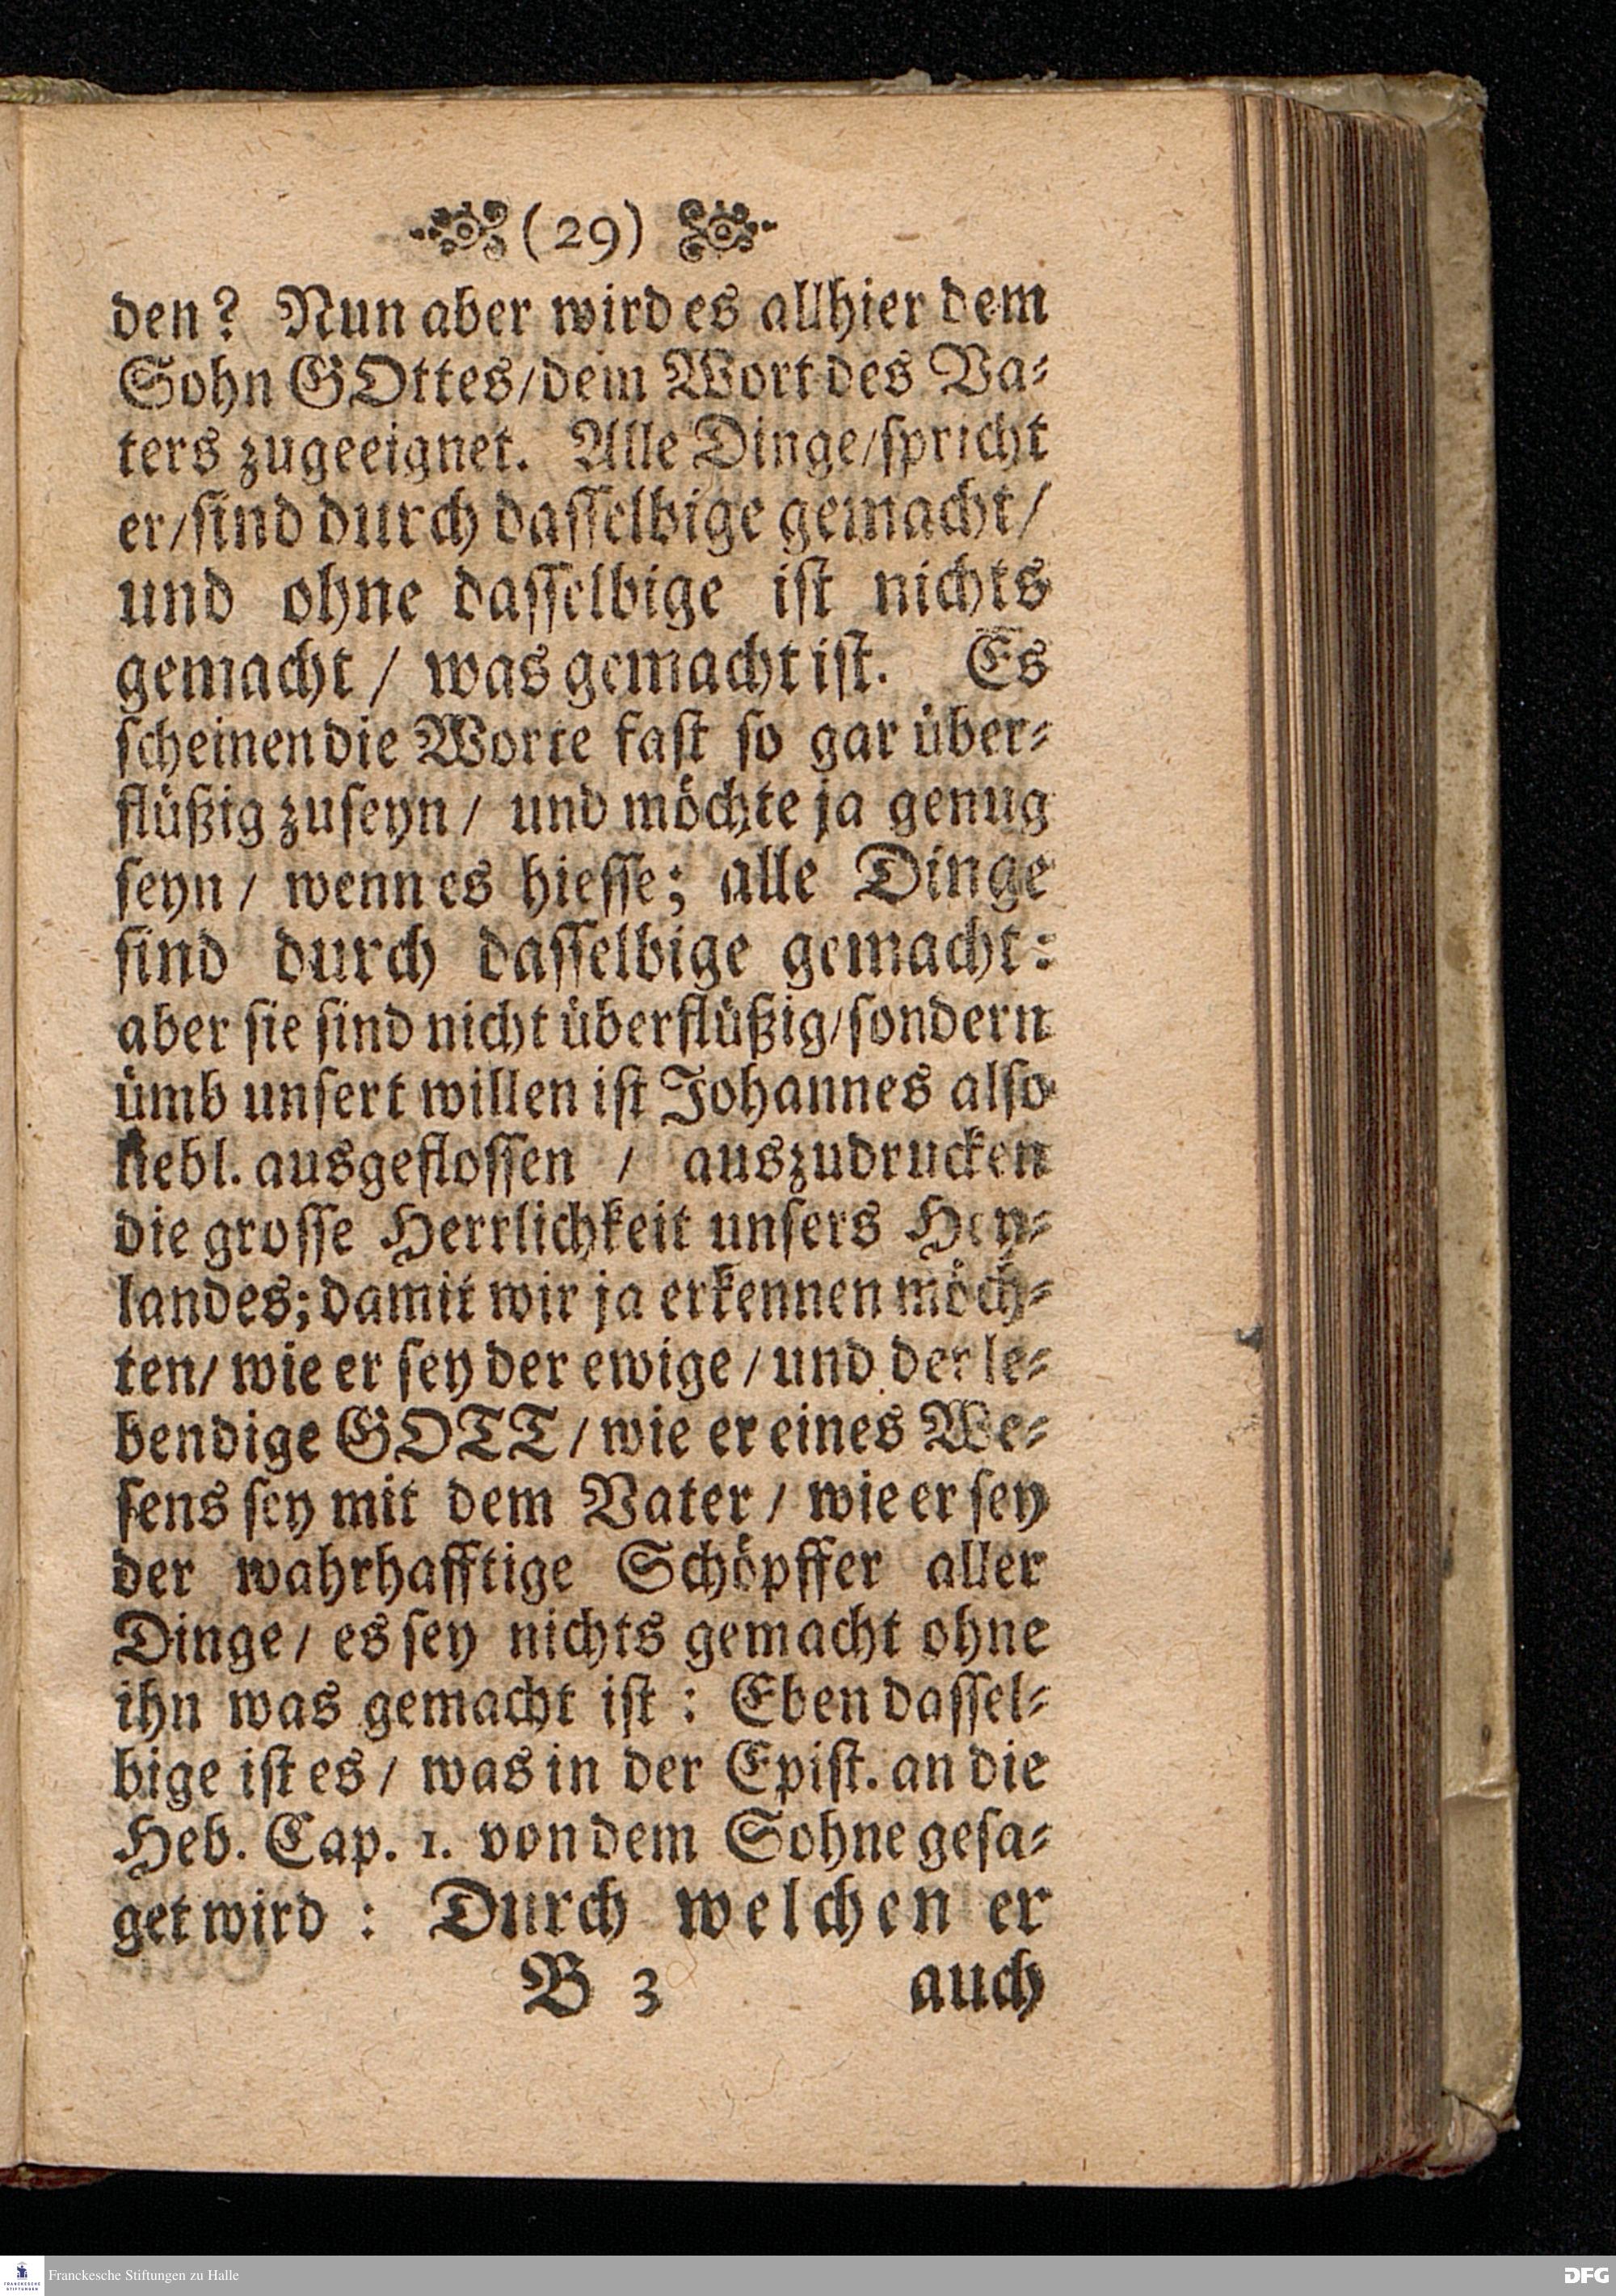 (29)
den? Nun aber wird es allhier dem
Sohn GOttes/dem Wort des Va⸗
ters zugeeignet. Alle Dinge/spricht
er/sind durch dasselbige gemacht/
und ohne dasselbige ist nichts
gemacht / was gemacht ist. Es
scheinen die Worte fast so gar über⸗
flüßig zuseyn / und möchte ja genug
seyn / wenn es hiesse; alle Dinge
sind durch dasselbige gemacht:
aber sie sind nicht überflüßig/sondern
ümb unsert willen ist Johannes also
liebl. ausgeflossen / auszudrucken
die grosse Herrlichkeit unsers Hey⸗
landes; damit wir ja erkennen möch⸗
ten/ wie er sey der ewige / und der le⸗
bendige GOTT / wie er eines We⸗
sens sey mit dem Vater / wie er sey
der wahrhafftige Schöpffer aller
Dinge / es sey nichts gemacht ohne
ihn was gemacht ist : Eben dassel⸗
bige ist es / was in der Epist. an die
Heb. Cap. 1. von dem Sohne gesa⸗
get wird : Durch welchen er
B 3 auch
Franckesche Stiftungen zu Halle
DFG